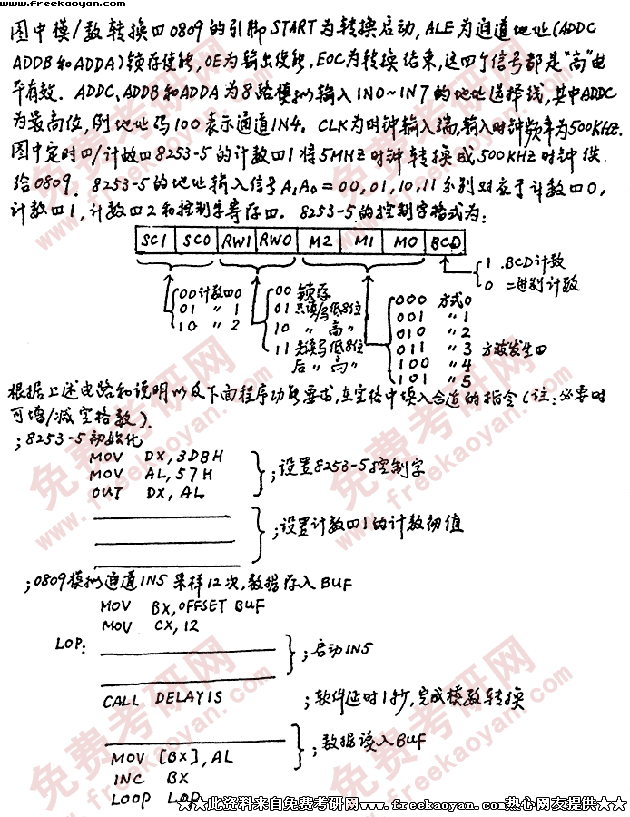 www.freekaoyan.com
图中模/数转换口0809的引脚START为转换启动,ALE为通道地址(ADDC
ADDB和ADDA)锁存使能,OE为输出使能,EOC为转换结束,这四个信号都是"高"电
平有效. ADDC、ADDB和ADDA为8路模拟输入IN0~IN7的地址选择线,其中ADDC
为最高位,例地址码100表示通道IN4。CLK为时钟输入端,输入时钟频率为500KHZ.
图中定时口/计数口8253-5的计数口1将5MHZ时钟转换成500KHZ时钟供
给0809。8253-5的地址输入信号A1A0=00,01,10,11分别对应于计数口0,
计数口1,计数口2和控制字寄存口。8253-5的控制字格式为:
SC1 SC0 RW1 RW0 M2 M1 M0 BCD
1 .BCD计数
0 二进制计数
00计数口0
01 〃 1
10 〃 2
00 锁存
01只读写低8位
10 〃 高〃
11先读写低8位
后〃高〃
000 方式0
001 〃1
010 〃2
011 〃3 方波发生口
100 〃4
101 〃5
根据上述电路和说明以及下面程序功能要求,在空格中填入合适的指令(注:必要时
可增/减空格数).
;8253-5初始化
MOV DX,3DBH
MOV AL,57H
OUT DX,AL
;设置8253-5控制字
;设置计数口1的计数初值
;0809模拟通道IN5采样12次,数据存入BUF
MOV BX,OFFSET BUF
MOV CX,12
LOP:
;启动IN5
CALL DELAY1S ;软件延时1秒,完成模数转换
;数据读入BUF
MOV [BX],AL
INC BX
LOOP LOP
★★此资料来自免费考研网www.freekaoyan.com热心网友提供★★
免费考研网
www.freekaoyan.com